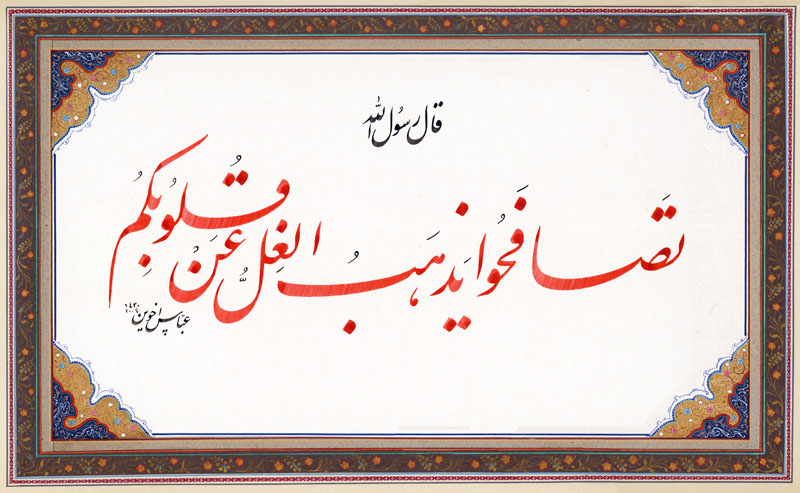 قال رسول الله
تَصافَحُوا يَذهَبُ الغِلُّ عَنْ قُلُوبِكُمُ
عباس اخوین
۱۴۳۰